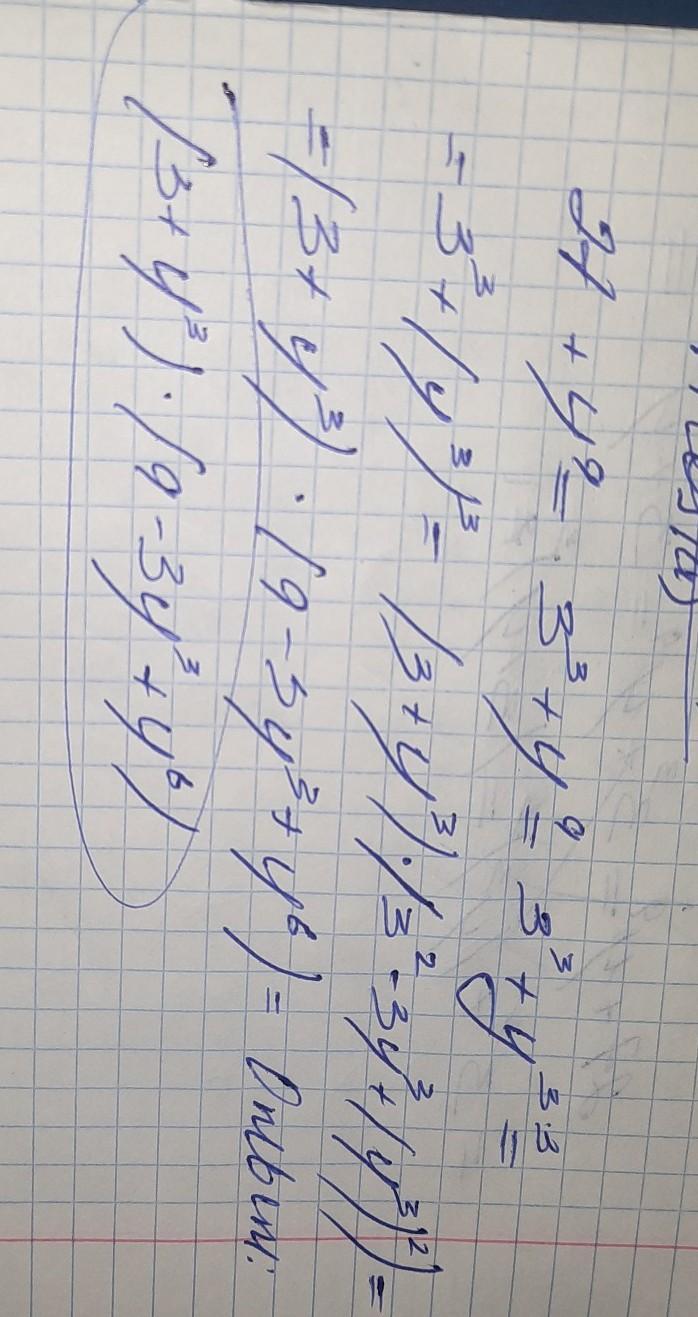 27 + y⁹ = 3³ + y⁹ = 3³ + y³·³ =
= 3³ + (y³)³ = (3 + y³)·(3² - 3y³ + (y³)²) =
= (3 + y³) · (9 - 3y³ + y⁶) = Ответ:
(3 + y³) · (9 - 3y³ + y⁶)